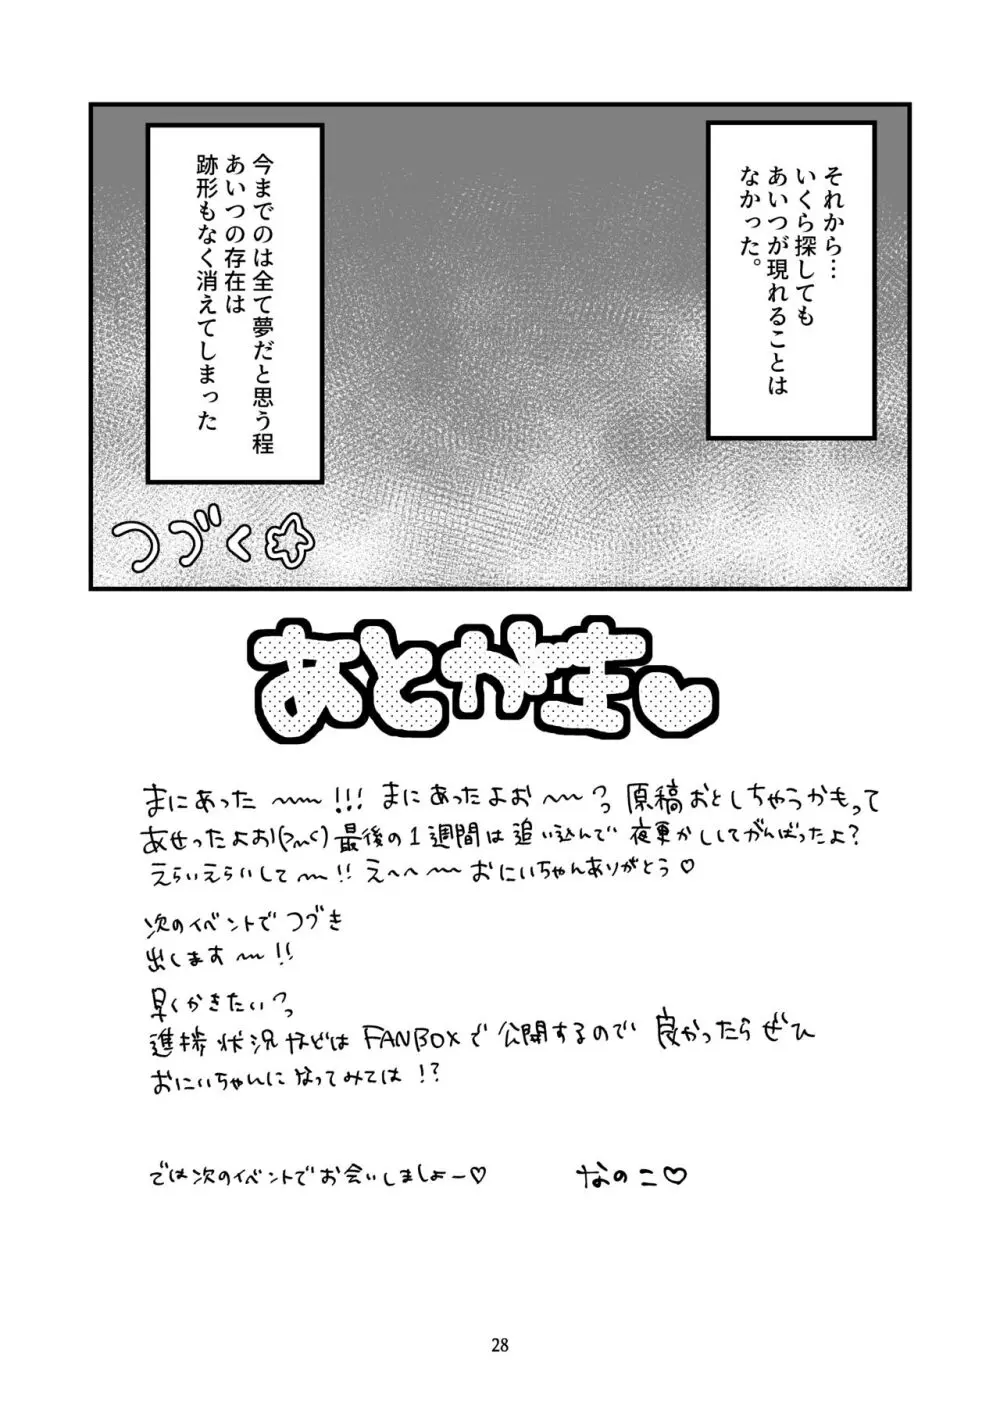 それから…
いくら探しても
あいつが現れることは
なかった。
今までのは全て夢だと思う程
あいつの存在は
跡形もなく消えてしまった
つづく☆
あとがき♥
まにあった〜〜!!! まにあったよお〜〜っ 原稿おとしちゃうかもって
あせったよお!(>﹏<) 最後の1週間は追い込んで 夜更かししてがんばったよ?
えらいえらいして〜〜!! え〜へ〜〜 おにいちゃんありがとう♡
次のイベントで つづき
出します〜〜!!
早くかきたいっ
進捗状況などは FANBOXで 公開するので 良かったらぜひ
おにいちゃんになってみては!?
では次のイベントでお会いしましょー♡
なのこ♡
28